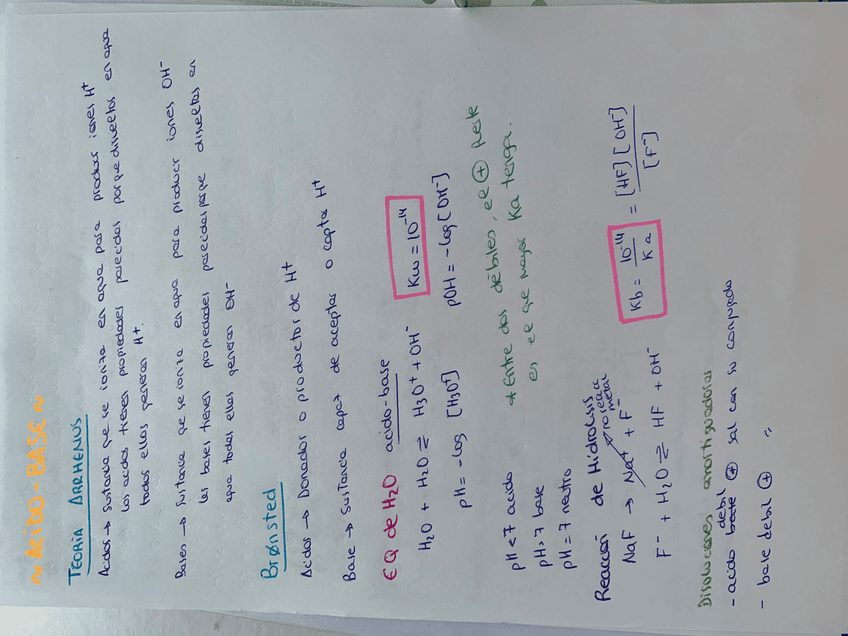 ~ ACIDO-BASE ~
TEORIA ARRHENUS
Acidos → Sustancia que se ioniza en agua para producir iones H⁺
Los acidos tienen propiedades parecidas porque disueltos en agua
todos ellos generan H⁺.
Bases → Sustancia que se ioniza en agua para producir iones OH⁻
las bases tienen propiedades parecidas porque disueltos en
agua todas ellas generan OH⁻
Brønsted
Acidos → Donador o productor de H⁺
Base → Sustancia capaz de aceptar o captar H⁺
EQ de H₂O acido-base
H₂O + H₂O ⇌ H₃O⁺ + OH⁻ Kw = 10⁻¹⁴
pH = -log [H₃O⁺] pOH = -log [OH⁻]
pH < 7 acido
pH > 7 base
pH = 7 neutro
* Entre dos débiles, el ⊕ fuerte
es el que mayor Ka tenga.
Reacción de Hidrolisis
NaF → Na⁺ + F⁻ no reacc metal
F⁻ + H₂O ⇌ HF + OH⁻ Kb = 10⁻¹⁴ / Ka = [HF][OH⁻] / [F⁻]
Disoluciones amortiguadoras
- acido debil ⊕ sal con su conjugado
- base debil ⊕ "